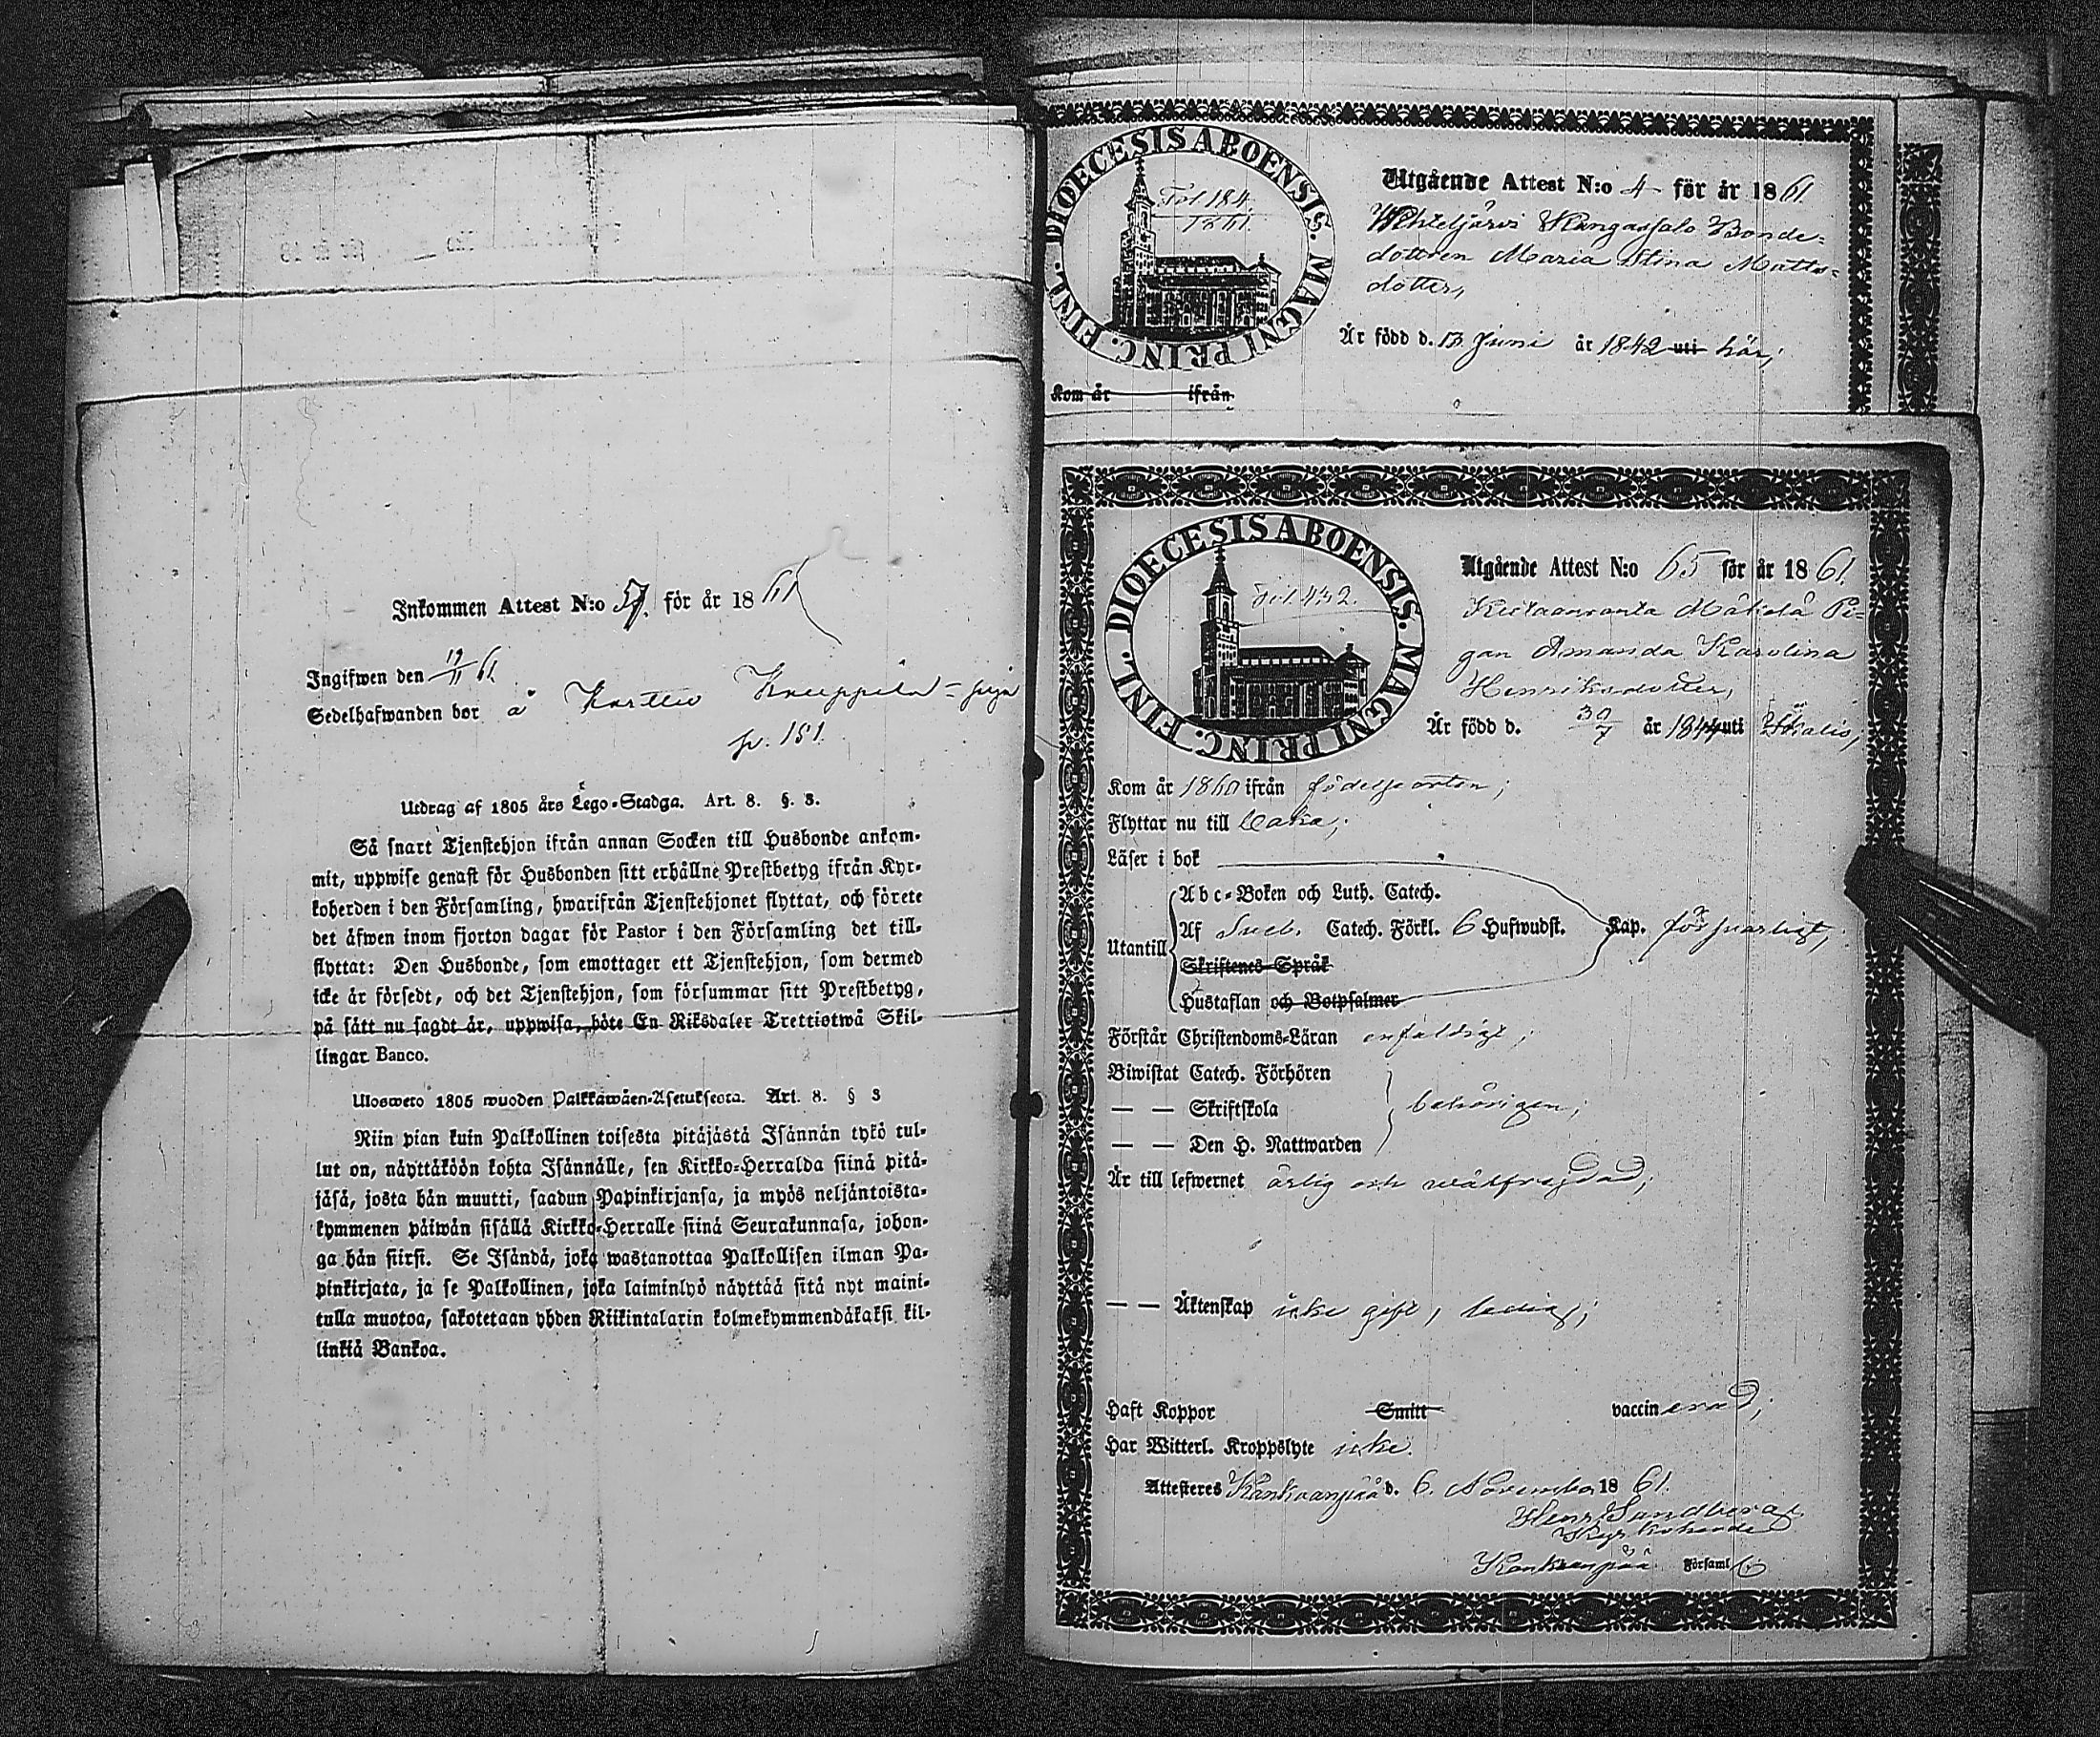 Inkommen Attest N:o 57. för år 1861
Ingifwen den 19/11 61.
Sedelhafwanden bor å Karttu Knuppila = piga
p. 151.
Utdrag af 1805 års Lego-Stadga. Art. 8. §. 3.
Så snart Tjenstehjon ifrån annan Socken till Husbonde ankom-
mit, uppwise genast för Husbonden sitt erhållne Prestbetyg ifrån Kyr-
koherden i den Församling, hwarifrån Tjenstehjonet flyttat, och förete
det äfwen inom fjorton dagar för Pastor i den Församling det till-
flyttat: Den Husbonde, som emottager ett Tjenstehjon, som dermed
icke är försedt, och det Tjenstehjon, som försummar sitt Prestbetyg,
på sätt nu sagdt är, uppwisa, böte En Riksdaler Trettiotwå Skil-
lingar Banco.
Ulosweto 1805 wuoden Palkkawäen-Asetuksesta. Art. 8. § 3
Niin pian kuin Palkollinen toisesta pitäjästä Isännän tykö tul-
lut on, näyttäköön kohta Isännälle, sen Kirkko-Herralda siinä pitä-
jäsä, josta hän muutti, saadun Papinkirjansa, ja myös neljäntoista-
kymmenen päiwän sisällä Kirkko-Herralle siinä Seurakunnasa, johon-
ga hän siirsi. Se Isändä, joka wastanottaa Palkollisen ilman Pa-
pinkirjata, ja se Palkollinen, joka laiminlyö näyttää sitä nyt maini-
tulla muotoa, sakotetaan yhden Riikintalarin kolmekymmendäkaksi kil-
linkiä Bankoa.
DIOECESIS ABOENSIS. MAGNI PRINC. FINL.
Fol 184.
1861.
Utgående Attest N:o 4 för år 1861
Wihteljärvi Kangassalo Bonde=
dottren Maria Stina Matts=
dotter,
Är född d. 13 Juni år 1842 uti här;
Kom år ifrån
DIOECESIS ABOENSIS. MAGNI PRINC. FINL.
Fol. 432.
Utgående Attest N:o 65 för år 1861.
Mäkelä Pi=
gan Amanda Karolina
Henriksdotter,
Är född d. 30/7 år 1844 uti Ikalis,
Kom år 1860 ifrån födelseorten;
Flyttar nu till
Läser i bok
Abc-Boken och Luth. Catech.
Utantill Af Sveb. Catech. Förkl. 6 Hufwudst. Kap. försvarligt,
Skriftenes Språk
Hustaflan och Botpsalmer
Förstår Christendoms-Läran enfaldigt;
Biwistat Catech. Förhören
— — Skriftskola behörigen;
— — Den H. Nattwarden
Är till lefwernet ärlig och välfrejdad;
— — Äktenskap icke gift, ledig;
Haft Koppor Smitt vaccinerad;
Har Witterl. Kroppslyte icke.
Attesteres Kankaanpää d. 6. November 1861.
Henr. Sandberg.
Kyrkoherde
Kankaanpää Församl